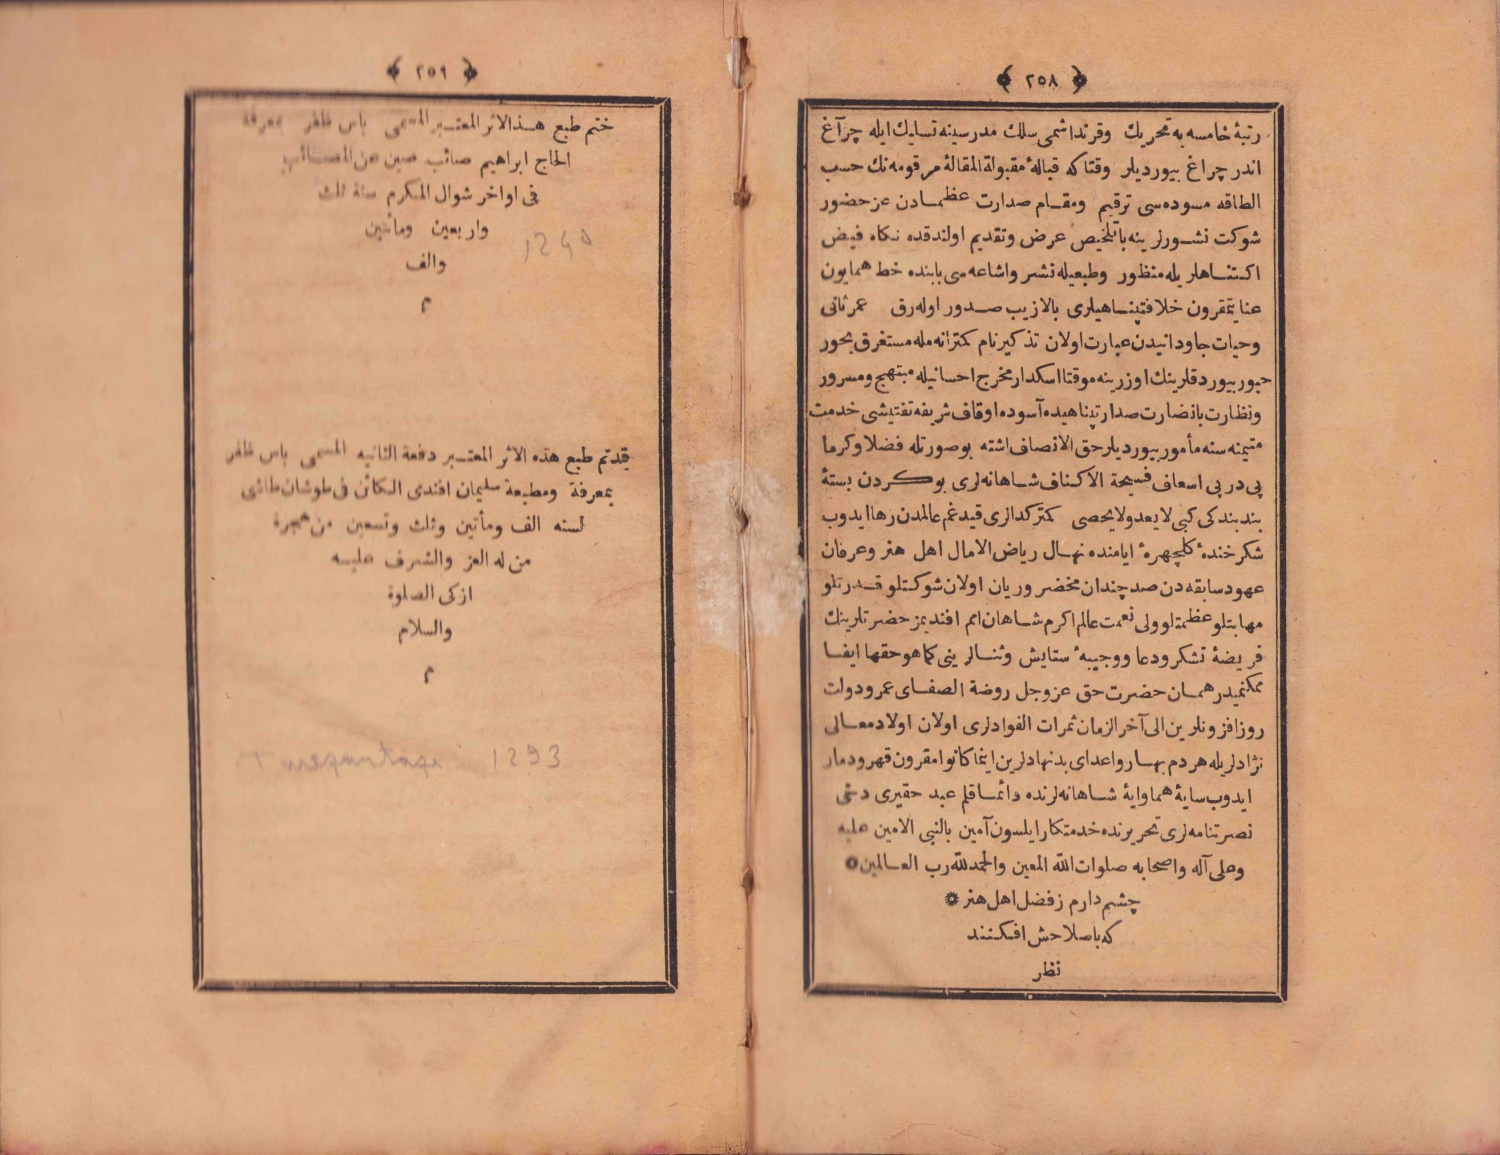 ﴿ ٢٥٨ ﴾
رتبهٔ خامسه یه تحریك وقرنداشمی سلك مدرسینه تسلیك ایله چرآغ
اندر چراغ بیوردیلر وقتا که قبالهٔ مقبولة المقالهٔ مرقومه نك حسب
الطاقه مسوده سی ترقیم ومقام صدارت عظمادن عز حضور
شوکت نشورلرینه با تلخیص عرض وتقدیم اولندقده نکاه فیض
اکتناهلریله منظور وطبعیله نشر واشاعه سی بابنده خط همایون
عنایتمقرون خلافتپناهیلری بالازیب صدور اوله رق عمر ثانی
وحیات جاودانیدن عبارت اولان تذکیر نام کمترانه مله مستغرق بحور
حبور بیوردقلرینك اوزرینه موقتا اسکدار مخرج احسانیله مبتهج ومسرور
ونظارت بانضارت صدارتپناهیده آسوده اوقاف شریفه تفتیشی خدمت
متیمنه سنه مأمور بیوردیلر حق الانصاف اشته بو صورتله فضلا وکرما
پی در پی اسعاف فسیحة الاکناف شاهانه لری بو کردن بستهٔ
بند بندکی کبی لا یعد ولا یحصی کمتر کدالری قید غم عالمدن رها ایدوب
شکر خندهٔ کلچهرهٔ ایامنده نهال ریاض الامال اهل هنر وعرفان
عهود سابقه دن صد چندان مخضر وریان اولان شوکتلو قدرتلو
مهابتلو عظمتلو ولی نعمت عالم اکرم شاهان امم افندیمز حضرتلرینك
فریضهٔ تشکر ودعا ووجیبهٔ ستایش وثنالرینی کما هو حقها ایفا
ممکنمیدر همان حضرت حق عز وجل روضة الصفای عمر ودولت
روز افزونلرین الی آخر الزمان ثمرات الفوادلری اولان اولاد معالی
نژادلریله هر دم بهار واعدای بدنهادلرین اینما کانوا مقرون قهر ودمار
ایدوب سایهٔ هماوایهٔ شاهانه لرنده دائما قلم عبد حقیری
نصرتنامه لری تحریرنده خدمتکار ایلسون آمین بالنبی الامین علیه
وعلی آله واصحابه صلوات الله المعین والحمد لله رب العالمین
چشم دارم ز فضل اهل هنر
که باصلاحش افکنند
نظر
﴿ ٢٥٩ ﴾
ختم طبع هذا الاثر المعتبر المسمی بأس ظفر بمعرفة
الحاج ابراهیم صائب صین من المصائب
فی اواخر شوال المکرم سنة ثلث
واربعین ومأتین
والف
م
قد تم طبع هذه الاثر المعتبر دفعة الثانیه المسمی بأس ظفر
بمعرفة ومطبعة سلیمان افندی الکائن فی طوشان طاشی
لسنه الف ومأتین وثلث وتسعین من هجرة
من له العز والشرف علیه
ازکی الصلوة
والسلام
م
1293